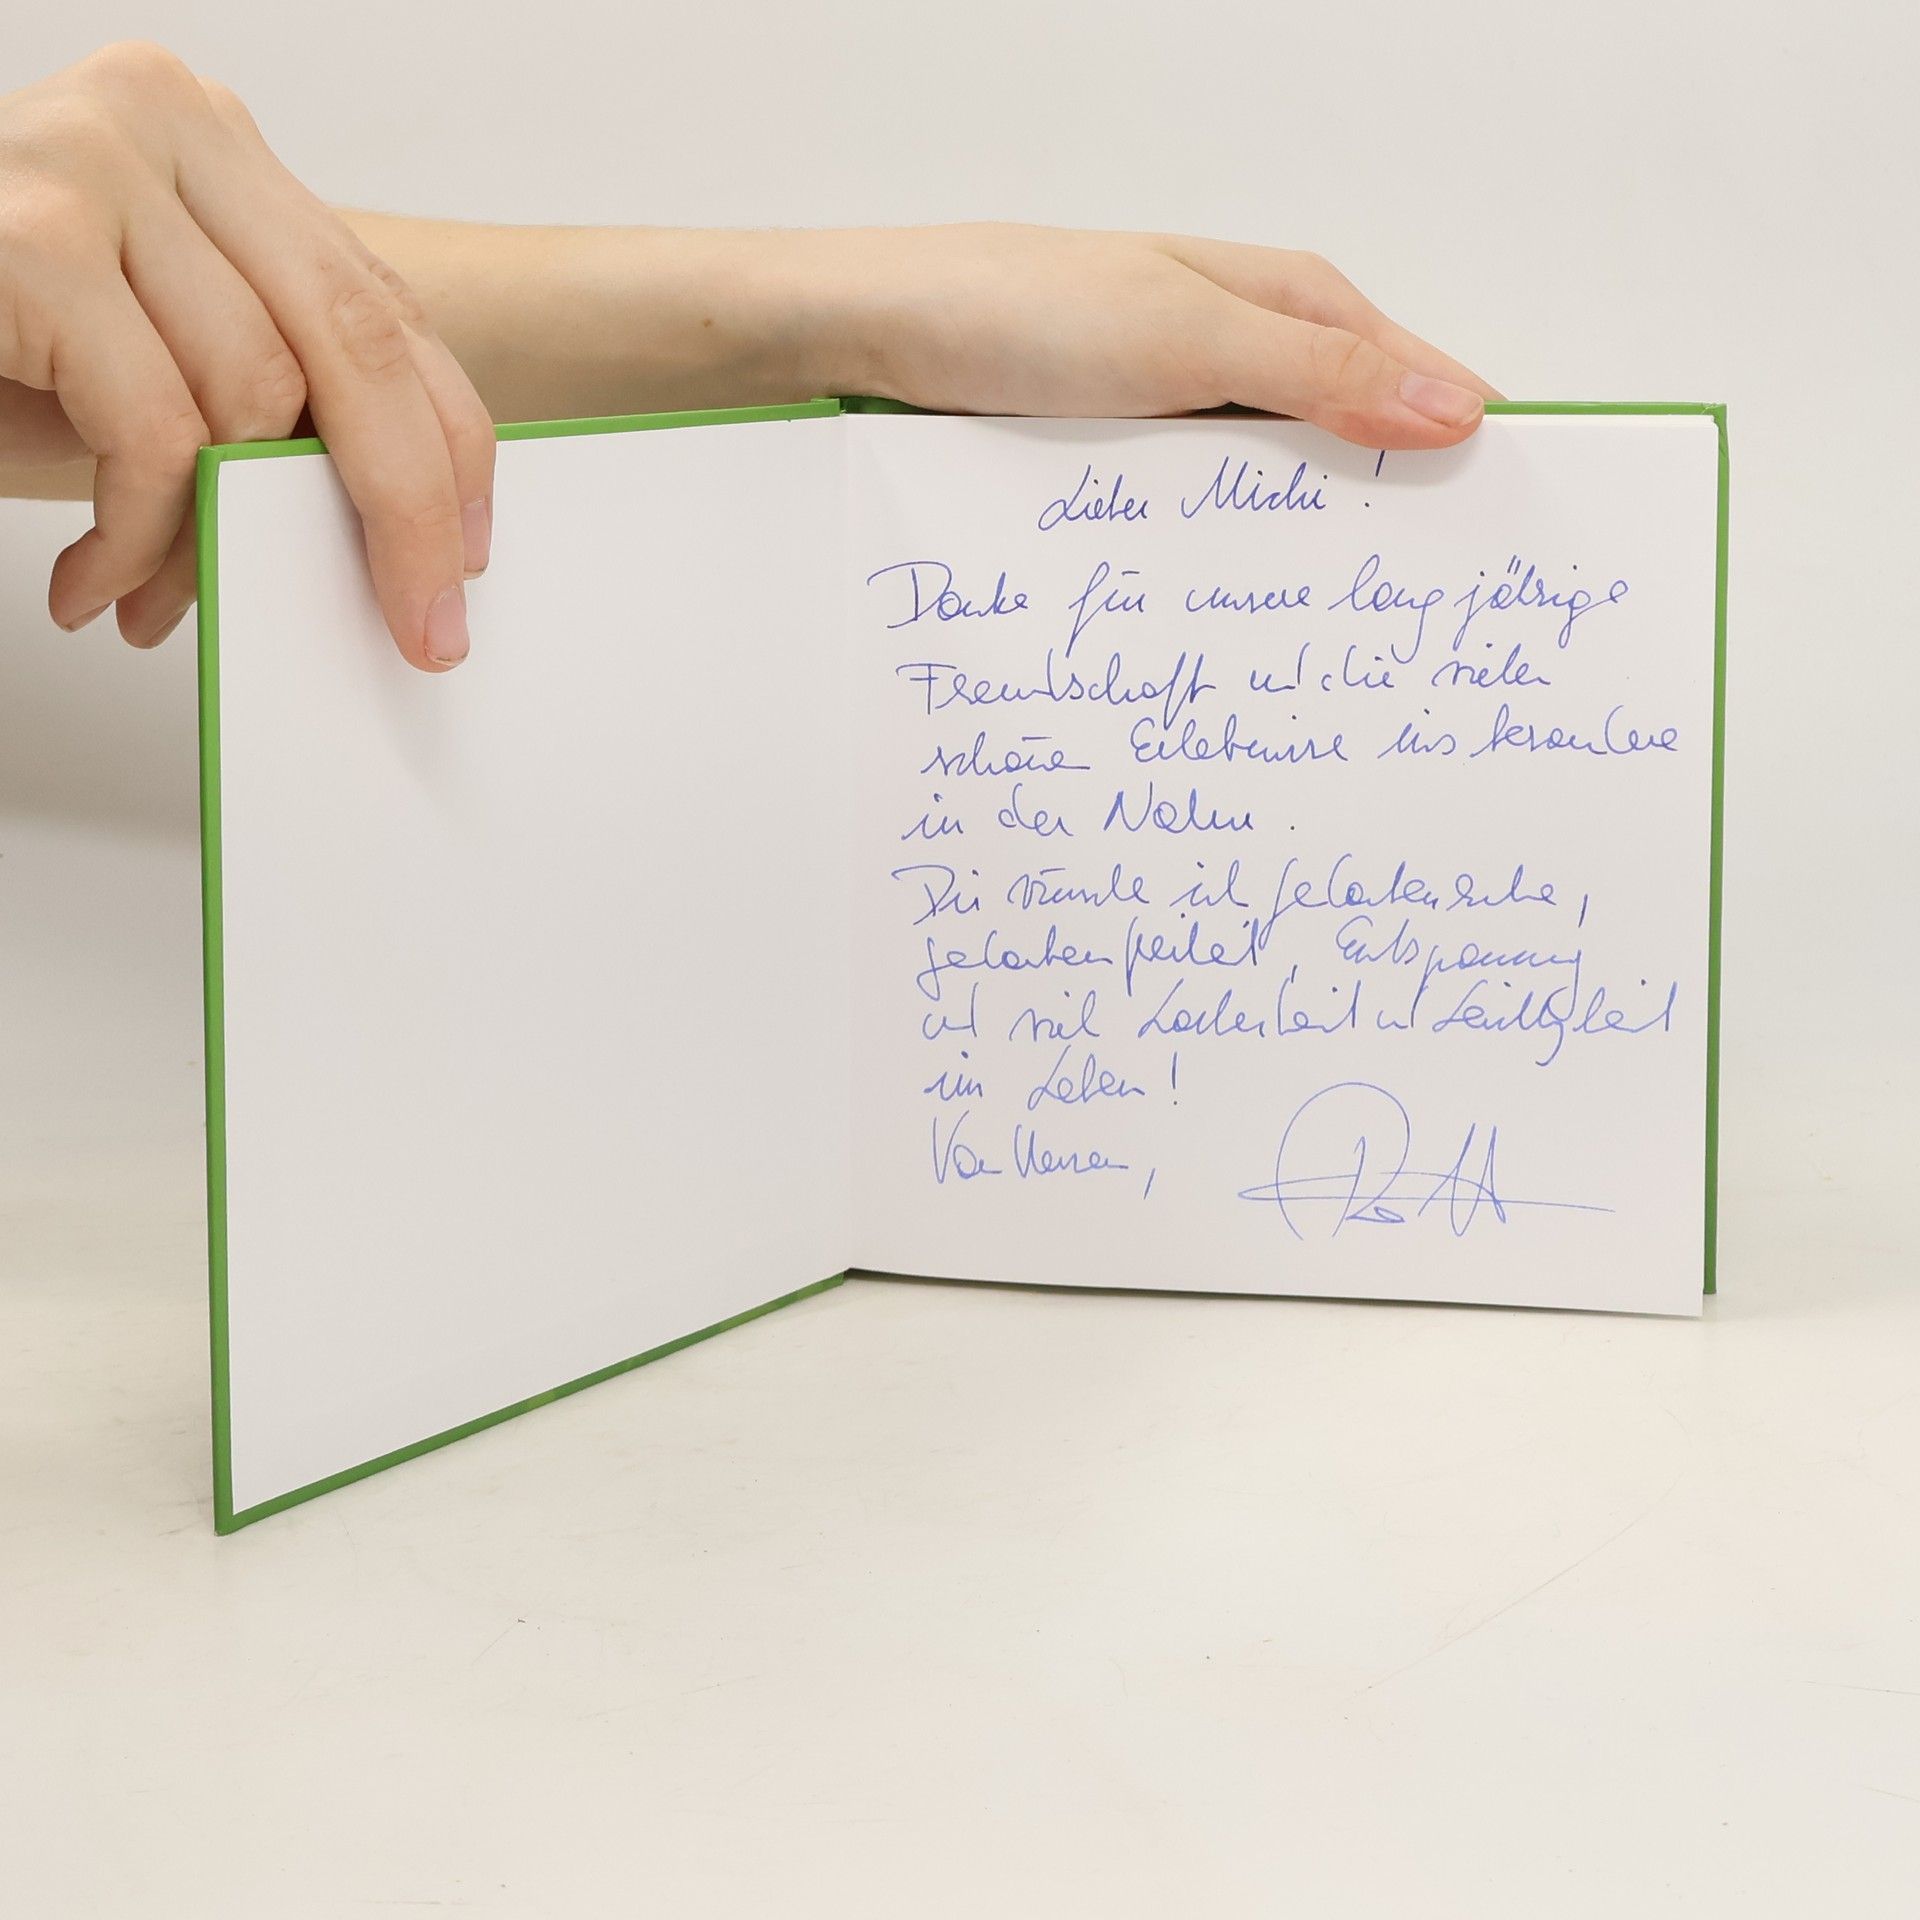 Lieber Michi!
Danke für unsere lang jährige
Freundschaft und die vielen
schönen Erlebnisse ins besondere
in der Natur.
Dir wünsche ich Gedankenruhe,
Gedankenfreiheit, Entspannung
und viel Lockerheit und Leichtigkeit
im Leben!
Von Herzen,